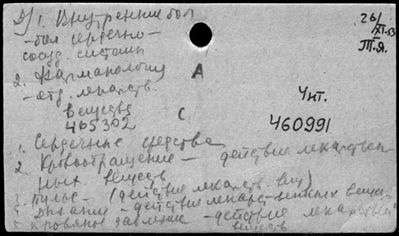 1. Внутренние бол
- бол сердечно-
сосуд. системы
26/XI-53
Т.Я.
2. Фармакология
А
- отд. лекарств.
веществ
Чит.
465302
С
460991
1. Сердечные средства
2. Кровообращение - действие лекарствен
ных веществ
3. Пульс - (действие лекарств. вещ)
4. Дыхание - действие лекарственных вещес.
5. Кровяное давление - действие лекарствен
веществ